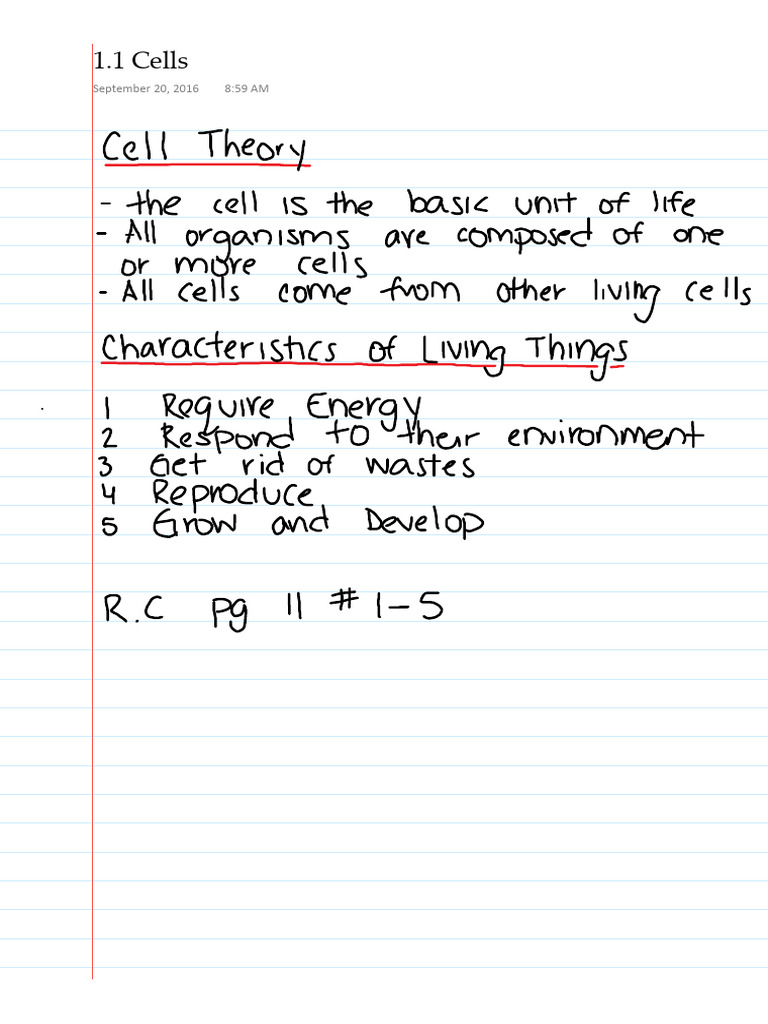 1.1 Cells
September 20, 2016 8:59 AM
Cell Theory
- the cell is the basic unit of life
- All organisms are composed of one
or more cells
- All cells come from other living cells
Characteristics of Living Things
1 Require Energy
2 Respond to their environment
3 Get rid of wastes
4 Reproduce
5 Grow and Develop
R.C pg 11 # 1-5